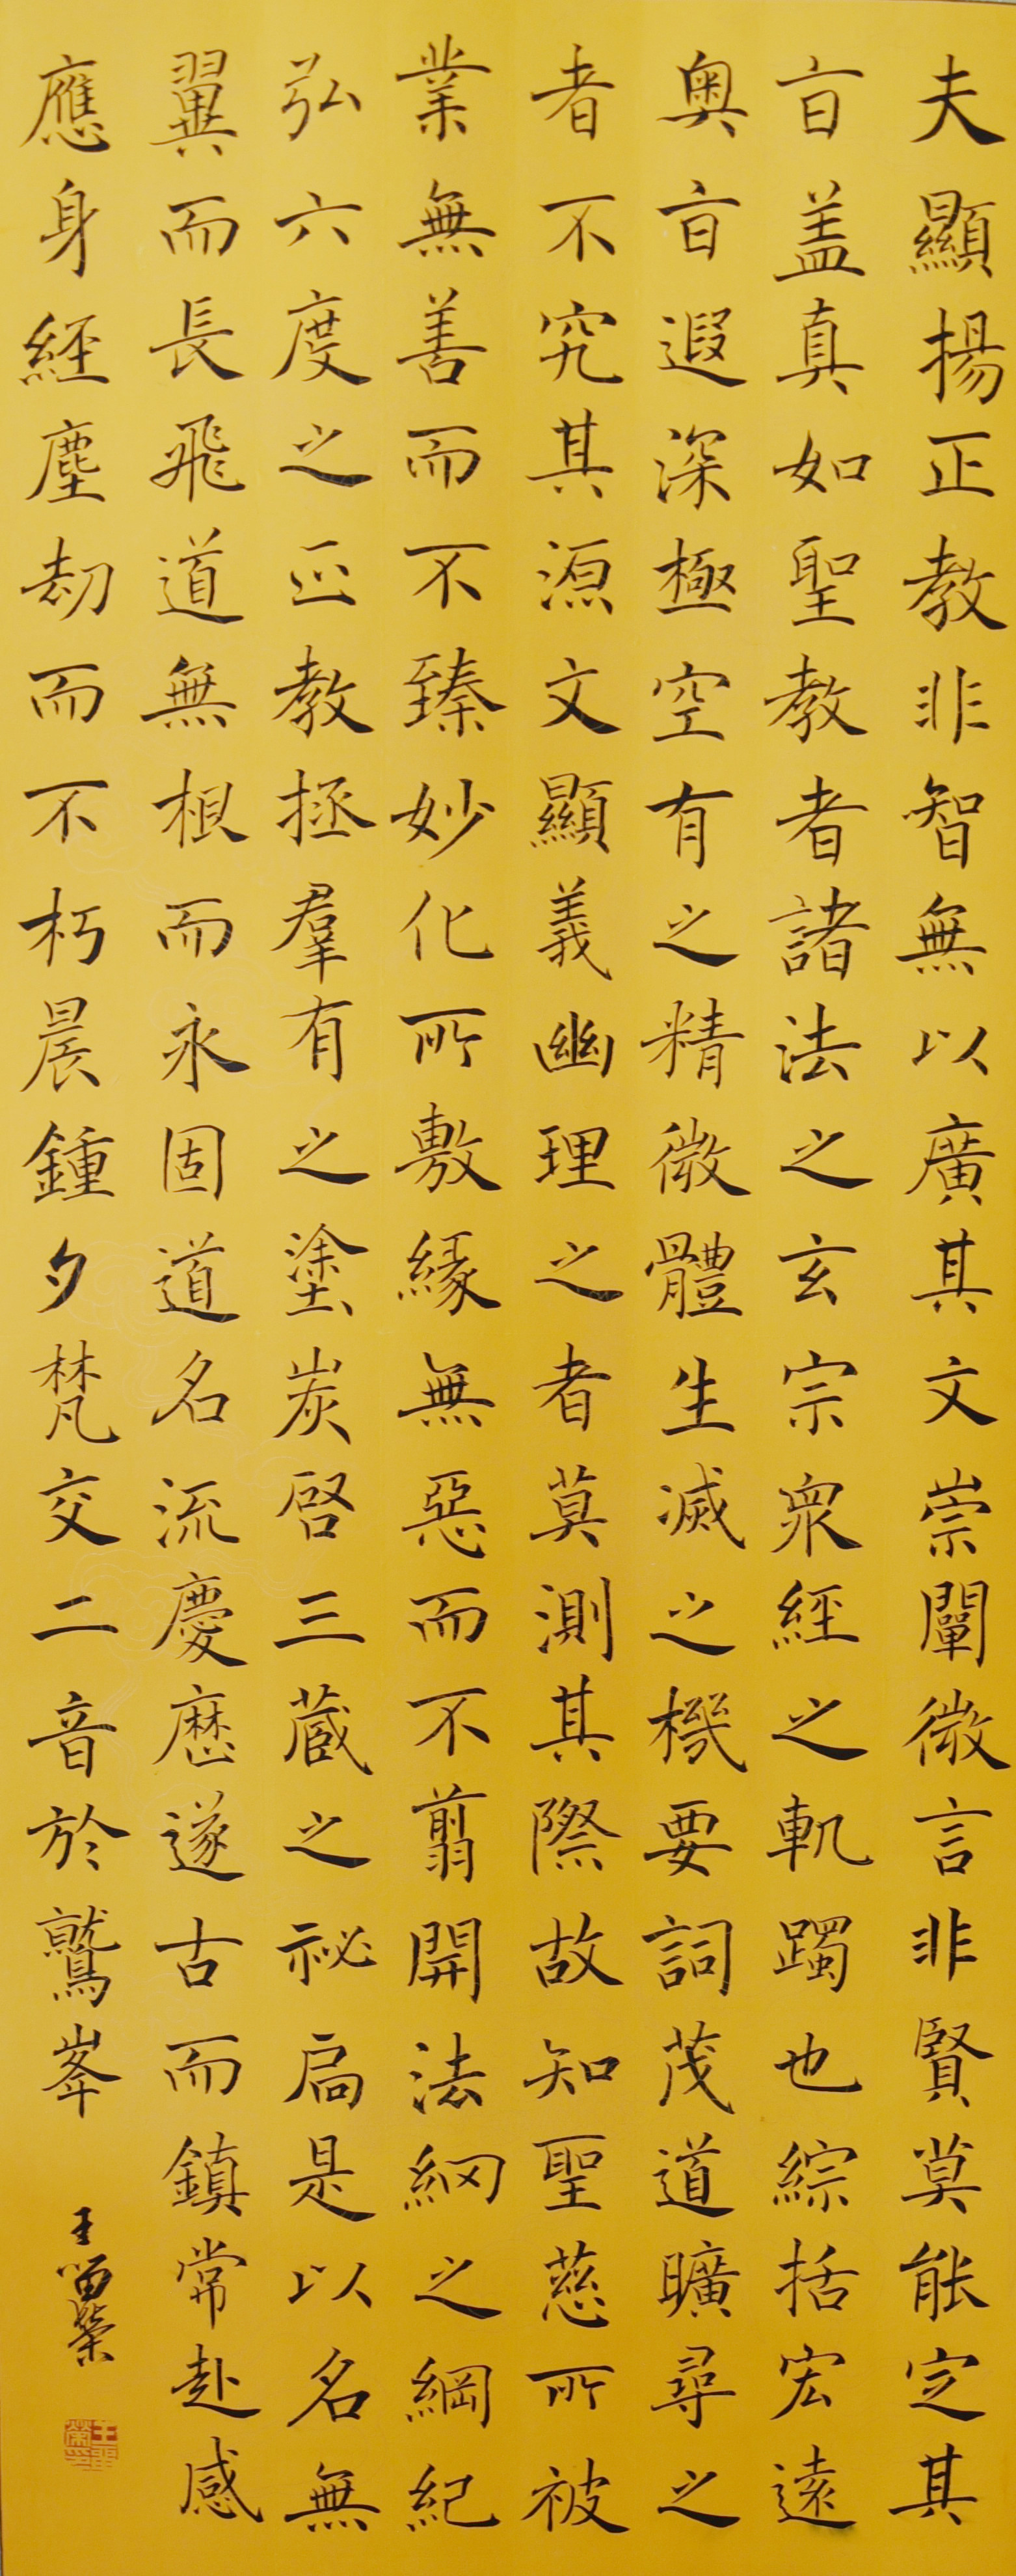 夫顯揚正教非智無以廣其文崇闡微言非賢莫能定其
盲盖真如聖教者諸法之玄宗衆經之軌躅也綜括宏遠
奧盲遐深極空有之精微體生滅之機要詞茂道曠尋之
者不究其源文顯義幽理之者莫測其際故知聖慈所被
業無善而不臻妙化所敷緣無惡而不翦開法網之綱紀
弘六度之正教拯羣有之塗炭啓三藏之祕扃是以名無
翼而長飛道無根而永固道名流慶歷遂古而鎮常赴感
應身經塵劫而不朽晨鍾夕梵交二音於鷲峯
王